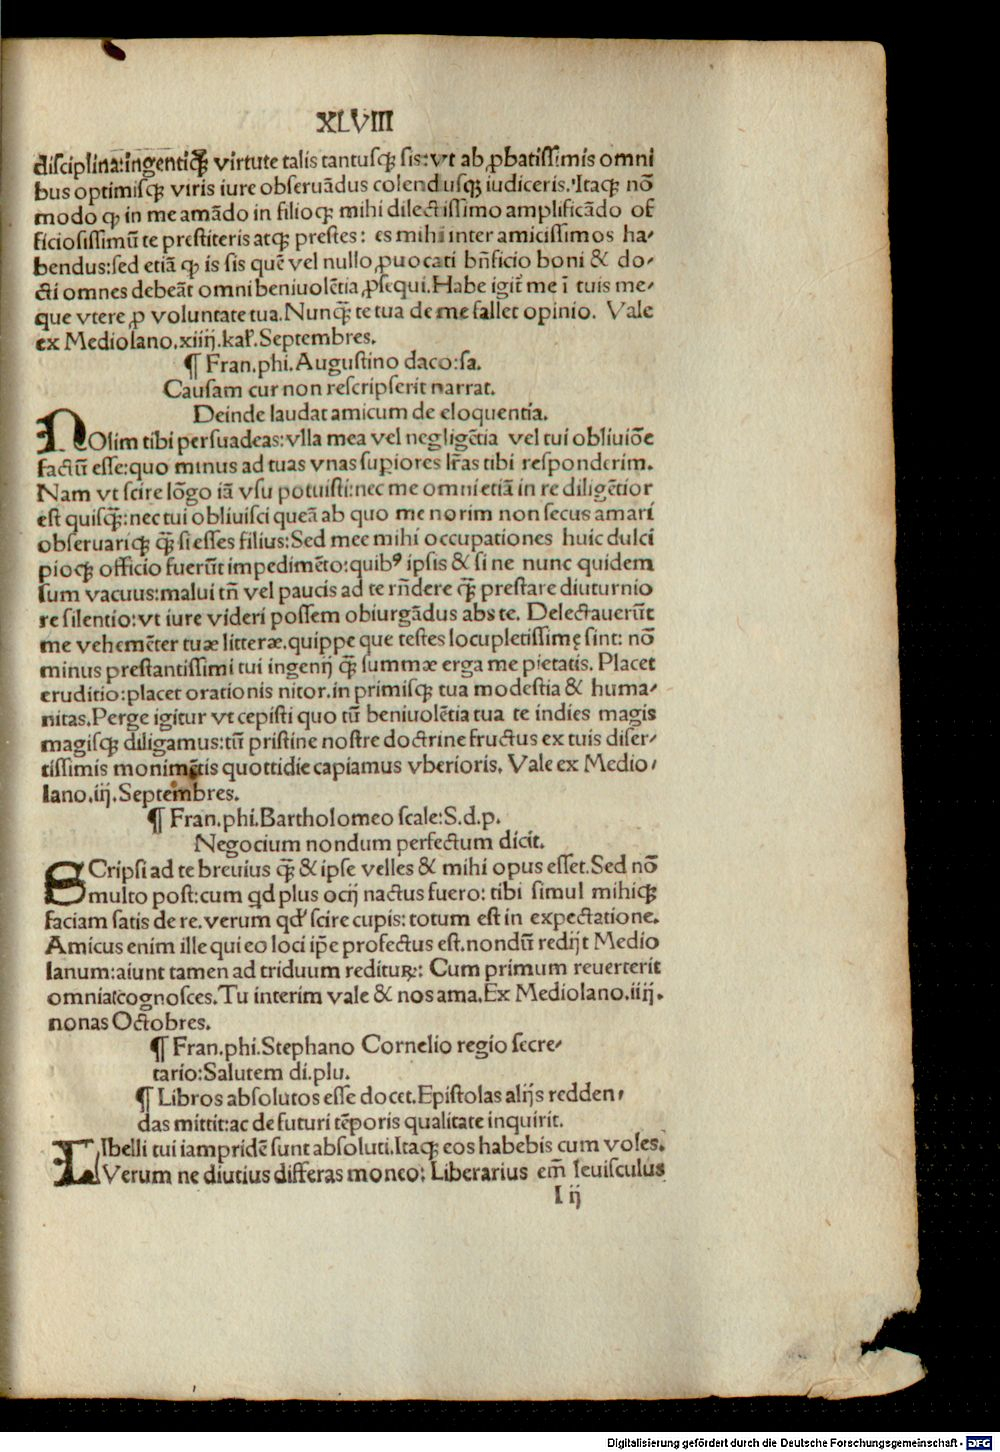 XLVIII
disciplina:ingentiq̃ virtute talis tantusq; sis:vt ab ꝓbatissimis omni
bus optimisq; viris iure obseruãdus colendusq; iudiceris. Itaq; nõ
modo ꝙ in me amãdo in filioq; mihi dilectissimo amplificãdo of
ficiosissimũ te prestiteris atq; prestes: es mihi inter amicissimos ha-
bendus:sed etiã ꝙ is sis quẽ vel nullo ꝓuocati bñficio boni & do-
cti omnes debeãt omni beniuolẽtia ꝓsequi.Habe igit̃ me ĩ tuis me-
que vtere ꝓ voluntate tua.Nunq̃; te tua de me fallet opinio. Vale
ex Mediolano.xiiij.kal'.Septembres.
¶ Fran.phi.Augustino daco:sa.
Causam cur non rescripserit narrat.
Deinde laudat amicum de eloquentia.
NOlim tibi persuadeas:vlla mea vel negligẽtia vel tui obliuiõe
factũ esse:quo minus ad tuas vnas supiores lr̃as tibi responderim.
Nam vt scire lõgo iã vsu potuisti:nec me omni etiã in re diligẽtior
est quisq̃;:nec tui obliuisci queã ab quo me norim non secus amari
obseruariq; q̃; si esses filius:Sed mee mihi occupationes huic dulci
pioq; officio fuerũt impedimẽto:quibꝰ ipsis & si ne nunc quidem
sum vacuus:malui tñ vel paucis ad te rñdere q̃; prestare diuturnio
re silentio:vt iure videri possem obiurgãdus abs te. Delectauerũt
me vehemẽter tuæ litteræ.quippe que testes locupletissimę sint: nõ
minus prestantissimi tui ingenij q̃; summæ erga me pietatis. Placet
eruditio:placet orationis nitor.in primisq; tua modestia & huma-
nitas.Perge igitur vt cepisti quo tũ beniuolẽtia tua te indies magis
magisq; diligamus:tũ pristine nostre doctrine fructus ex tuis diser-
tissimis monimẽtis quottidie capiamus vberioris. Vale ex Medio-
lano.iij.Septembres.
¶ Fran.phi.Bartholomeo scale:S.d.p.
Negocium nondum perfectum dicit.
SCripsi ad te breuius q̃; & ipse velles & mihi opus esset.Sed nõ
multo post:cum qd plus ocij nactus fuero: tibi simul mihiq;
faciam satis de re.verum qd' scire cupis: totum est in expectatione.
Amicus enim ille qui eo loci ip̃e profectus est.nondũ redijt Medio
lanum:aiunt tamen ad triduum redituꝝ: Cum primum reuerterit
omnia cognosces.Tu interim vale & nos ama.Ex Mediolano.iiij.
nonas Octobres.
¶ Fran.phi.Stephano Cornelio regio secre-
tario:Salutem di.plu.
¶ Libros absolutos esse docet.Epistolas alijs redden-
das mittit:ac de futuri tẽporis qualitate inquirit.
LIbelli tui iampridẽ sunt absoluti.Itaq; eos habebis cum voles.
Verum ne diutius differas moneo: Liberarius em̃ leuisculus
I ij
Digitalisierung gefördert durch die Deutsche Forschungsgemeinschaft - DFG